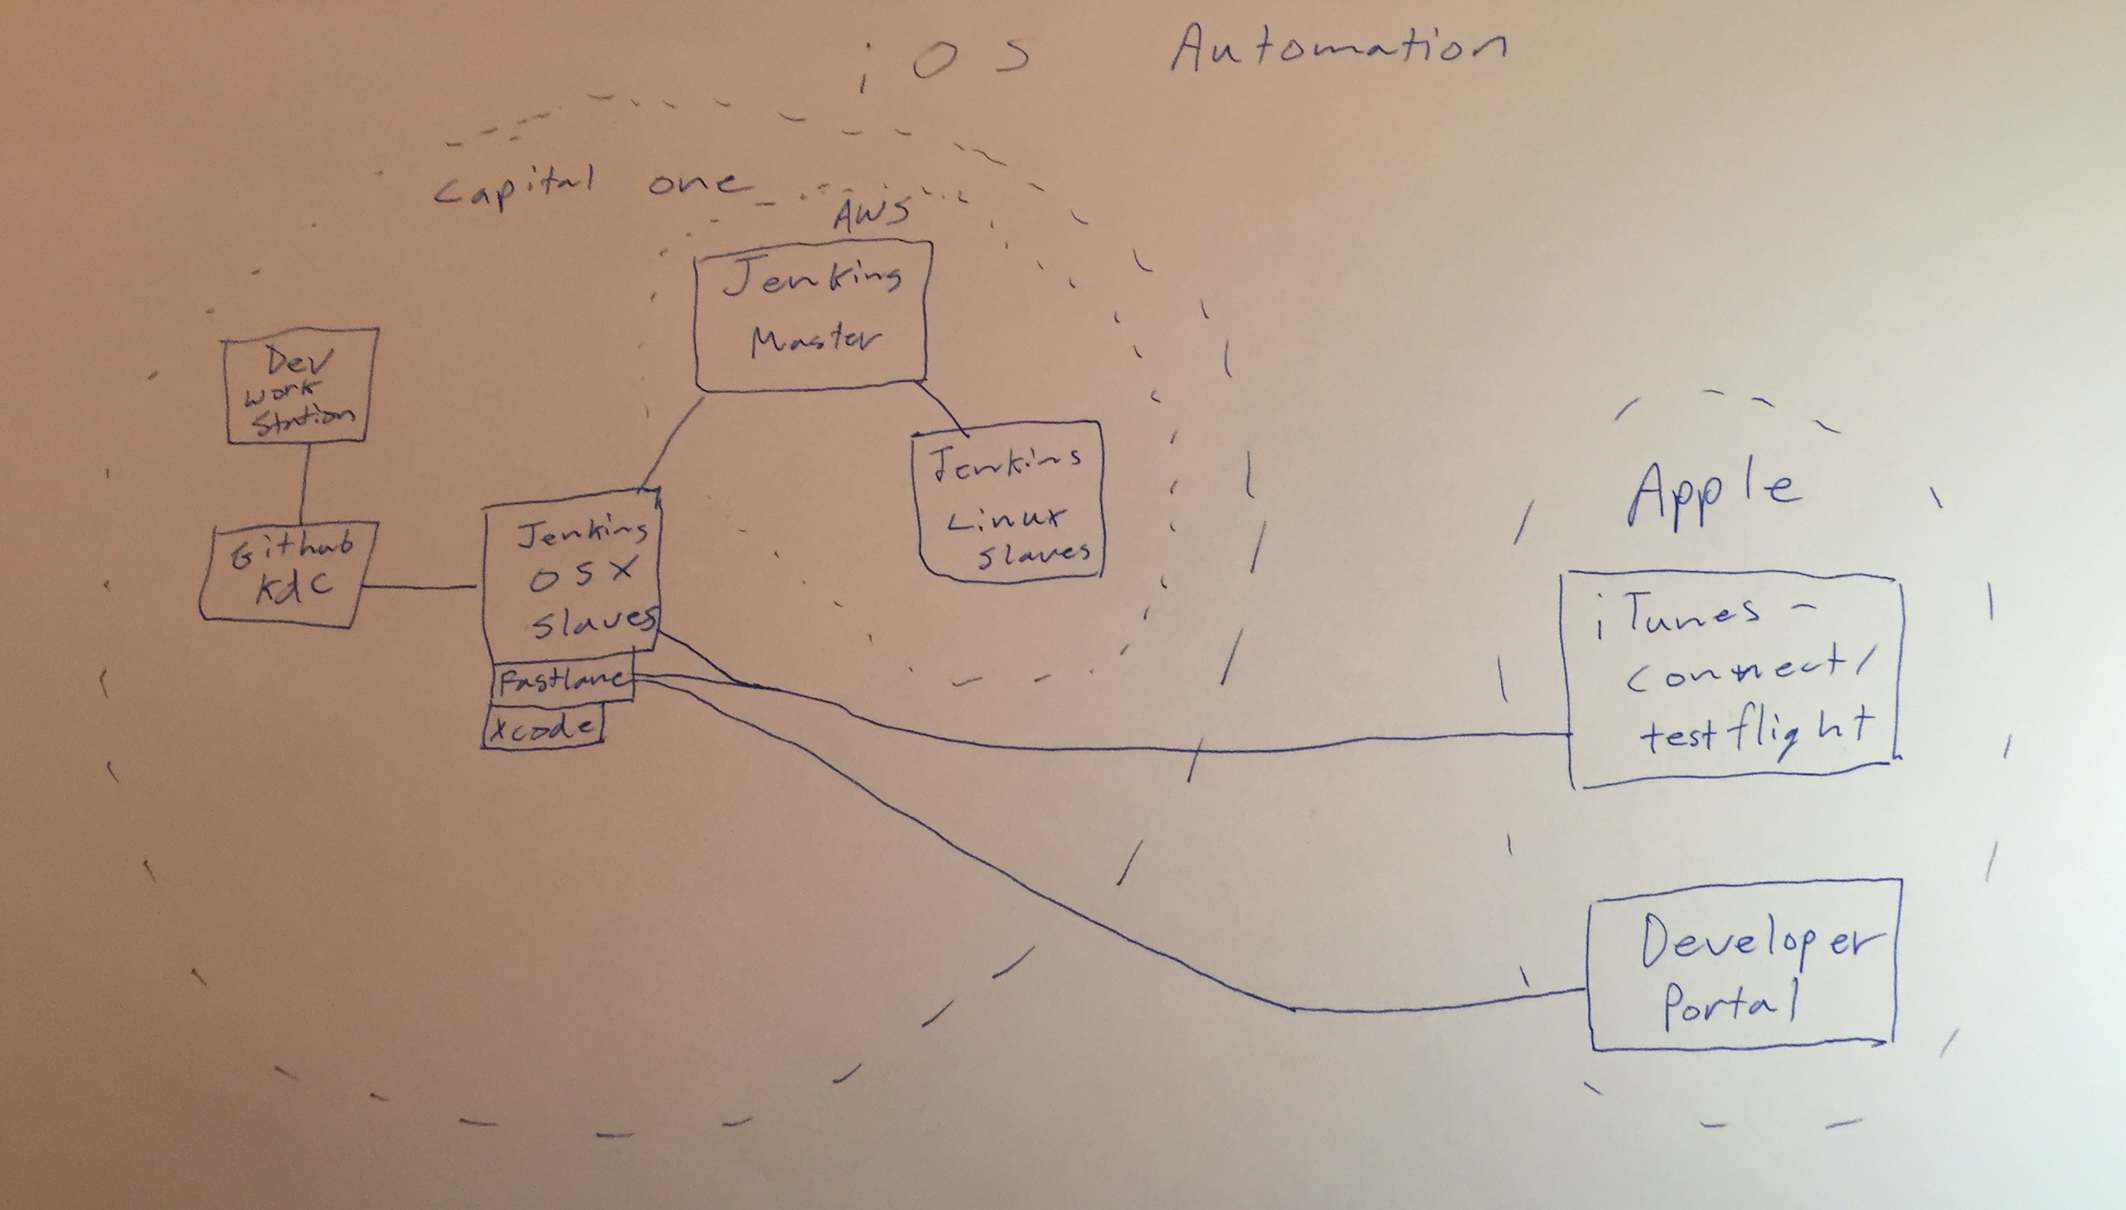 iOS Automation
Capital one
AWS
Jenkins
Master
Dev
work
Station
Jenkins
Linux
Slaves
Github
kdc
Jenkins
OSX
Slaves
Fastlane
Xcode
Apple
iTunes -
connect/
testflight
Developer
Portal